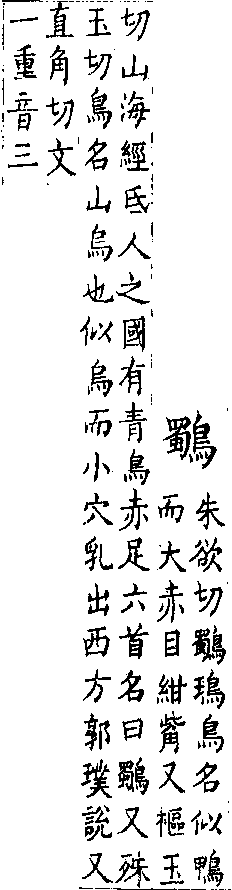 鸀
朱欲切鸀鳿鳥名似鴨
而大赤目紺觜又樞玉
切山海經氐人之國有青鳥赤足六首名曰鸀又殊
玉切鳥名山烏也似烏而小穴乳出西方郭璞說又
直角切文
一重音三